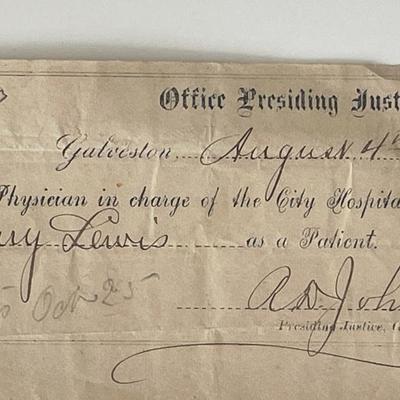 Office Presiding Just
Galveston August 4th
Physician in charge of the City Hospita
Lewis as a Patient.
Oct 25
A. D. Joh
Presiding Justice, G